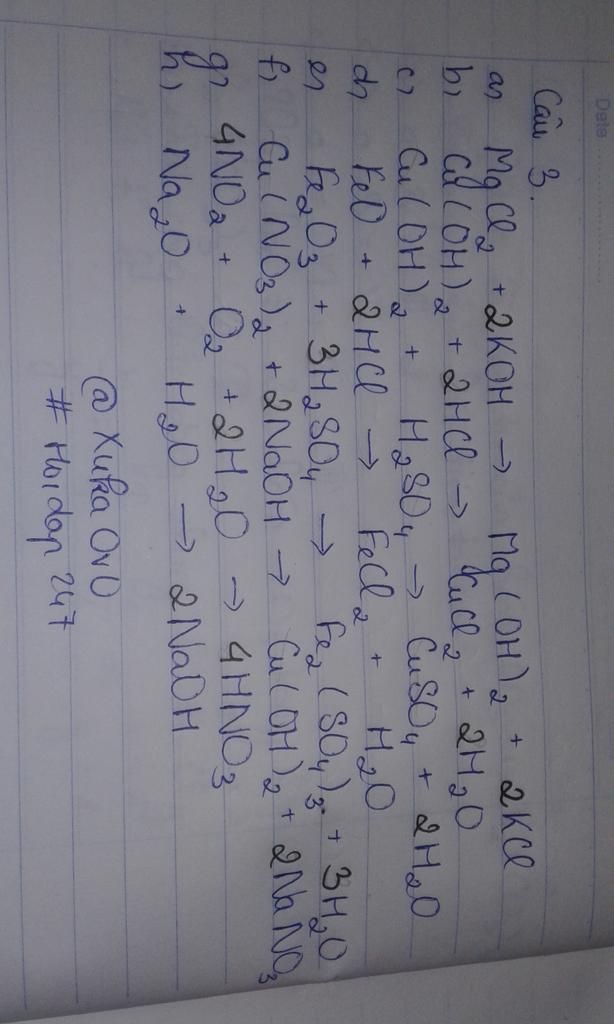 Date
Câu 3.
a, MgCl₂ + 2KOH → Mg(OH)₂ + 2KCl
b, Cu(OH)₂ + 2HCl → CuCl₂ + 2H₂O
c, Cu(OH)₂ + H₂SO₄ → CuSO₄ + 2H₂O
d, FeO + 2HCl → FeCl₂ + H₂O
e, Fe₂O₃ + 3H₂SO₄ → Fe₂(SO₄)₃ + 3H₂O
f, Cu(NO₃)₂ + 2NaOH → Cu(OH)₂ + 2NaNO₃
g, 4NO₂ + O₂ + 2H₂O → 4HNO₃
h, Na₂O + H₂O → 2NaOH
@XukaOvO
# Hoidap 247